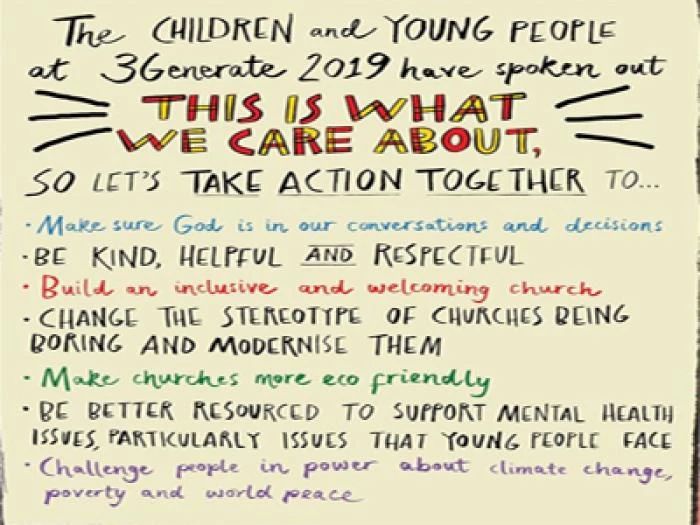 The CHILDREN and YOUNG PEOPLE
at 3Generate 2019 have spoken out
THIS IS WHAT
WE CARE ABOUT,
SO LET'S TAKE ACTION TOGETHER TO...
· Make sure God is in our conversations and decisions
· BE KIND, HELPFUL AND RESPECTFUL
· Build an inclusive and welcoming church
· CHANGE THE STEREOTYPE OF CHURCHES BEING
BORING AND MODERNISE THEM
· Make churches more eco friendly
· BE BETTER RESOURCED TO SUPPORT MENTAL HEALTH
ISSUES, PARTICULARLY ISSUES THAT YOUNG PEOPLE FACE
· Challenge people in power about climate change,
poverty and world peace